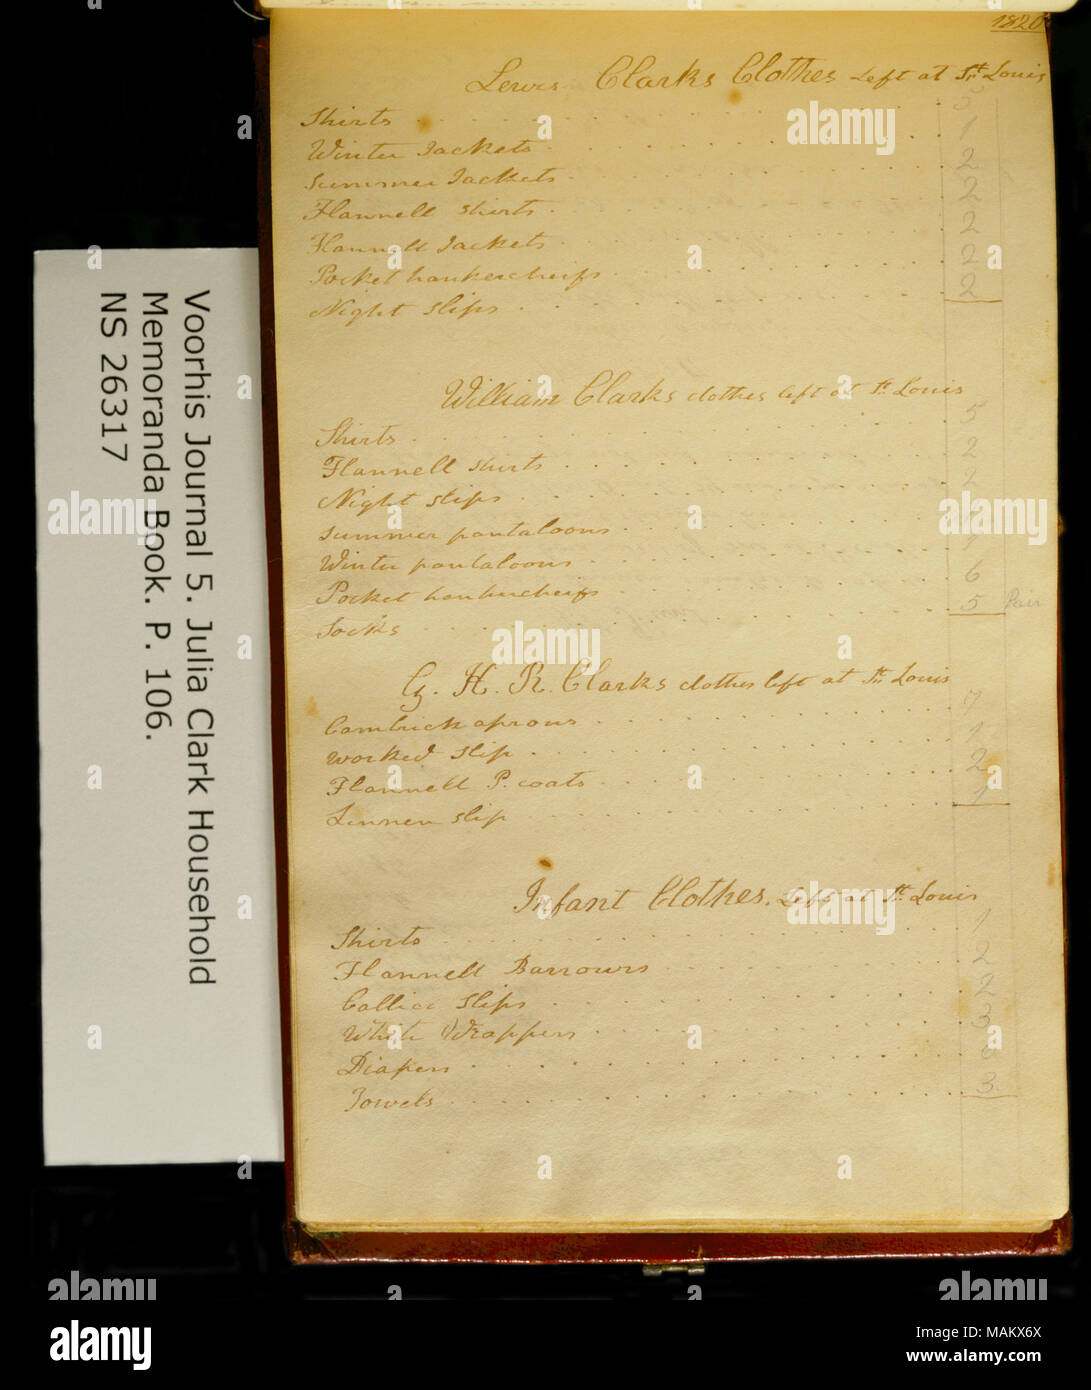 1820
Lewis Clarks Clothes Left at St. Louis
Shirts 5
Winter Jackets 1
Summer Jackets 2
Flannell shirts 2
Flannell Jackets 2
Pocket hankercheifs 2
Night slips 2
William Clarks clothes left at St. Louis
Shirts 5
Flannell shirts 2
Night slips 2
summer pantaloons
Winter pantaloons 1
Pocket hankercheifs 6
Socks 5 Pair
G. H. R. Clarks clothes left at St. Louis
Cambrick aprons 7
worked slip 1
Flannell P. coats 2
Linnen slip 1
Infant Clothes. Left at St. Louis
Shirts 1
Flannell Barrowrs 2
Callico slips 2
White Wrappers 3
Diapers 6
Towels 3
Voorhis Journal 5. Julia Clark Household
Memoranda Book. P. 106.
NS 26317
alamy
alamy
Image ID: MAKX6X
www.alamy.com